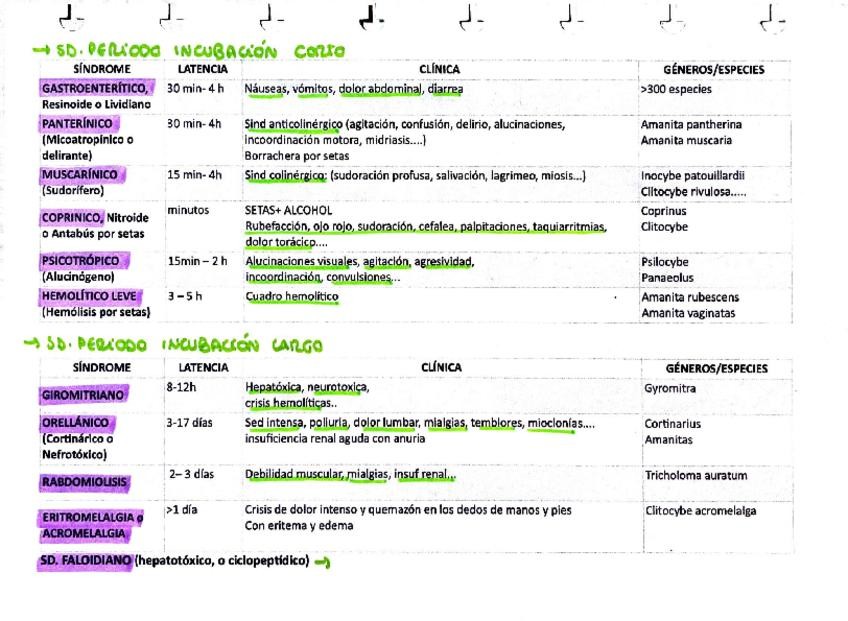 → SD. PERÍODO INCUBACIÓN CORTO
SÍNDROME LATENCIA CLÍNICA GÉNEROS/ESPECIES
GASTROENTERÍTICO, 30 min- 4 h Náuseas, vómitos, dolor abdominal, diarrea >300 especies
Resinoide o Lividiano
PANTERÍNICO 30 min- 4h Sind anticolinérgico (agitación, confusión, delirio, alucinaciones, Amanita pantherina
(Micoatropinico o incoordinación motora, midriasis....) Amanita muscaria
delirante) Borrachera por setas
MUSCARÍNICO 15 min- 4h Sind colinérgico: (sudoración profusa, salivación, lagrimeo, miosis...) Inocybe patouillardii
(Sudorífero) Clitocybe rivulosa.....
minutos SETAS+ ALCOHOL Coprinus
COPRINICO, Nitroide Rubefacción, ojo rojo, sudoración, cefalea, palpitaciones, taquiarritmias, Clitocybe
o Antabús por setas dolor torácico....
PSICOTRÓPICO 15min – 2 h Alucinaciones visuales, agitación, agresividad, Psilocybe
(Alucinógeno) incoordinación, convulsiones... Panaeolus
HEMOLÍTICO LEVE 3 – 5 h Cuadro hemolítico Amanita rubescens
(Hemólisis por setas) Amanita vaginatas
→ SD. PERÍODO INCUBACIÓN LARGO
SÍNDROME LATENCIA CLÍNICA GÉNEROS/ESPECIES
GIROMITRIANO 8-12h Hepatóxica, neurotoxica, Gyromitra
crisis hemolíticas..
ORELLÁNICO 3-17 días Sed intensa, poliuria, dolor lumbar, mialgias, temblores, mioclonías.... Cortinarius
(Cortinárico o insuficiencia renal aguda con anuria Amanitas
Nefrotóxico)
RABDOMIOLISIS 2– 3 días Debilidad muscular, mialgias, insuf renal... Tricholoma auratum
ERITROMELALGIA o >1 día Crisis de dolor intenso y quemazón en los dedos de manos y pies Clitocybe acromelalga
ACROMELALGIA Con eritema y edema
SD. FALOIDIANO (hepatotóxico, o ciclopeptídico) →